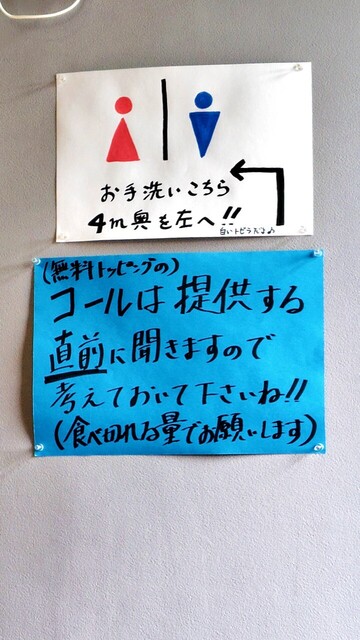 お手洗いこちら
4m奥を左へ!!
白いトビラだよ♪
(無料トッピングの)
コールは提供する
直前に聞きますので
考えておいて下さいね!!
(食べ切れる量でお願いします)